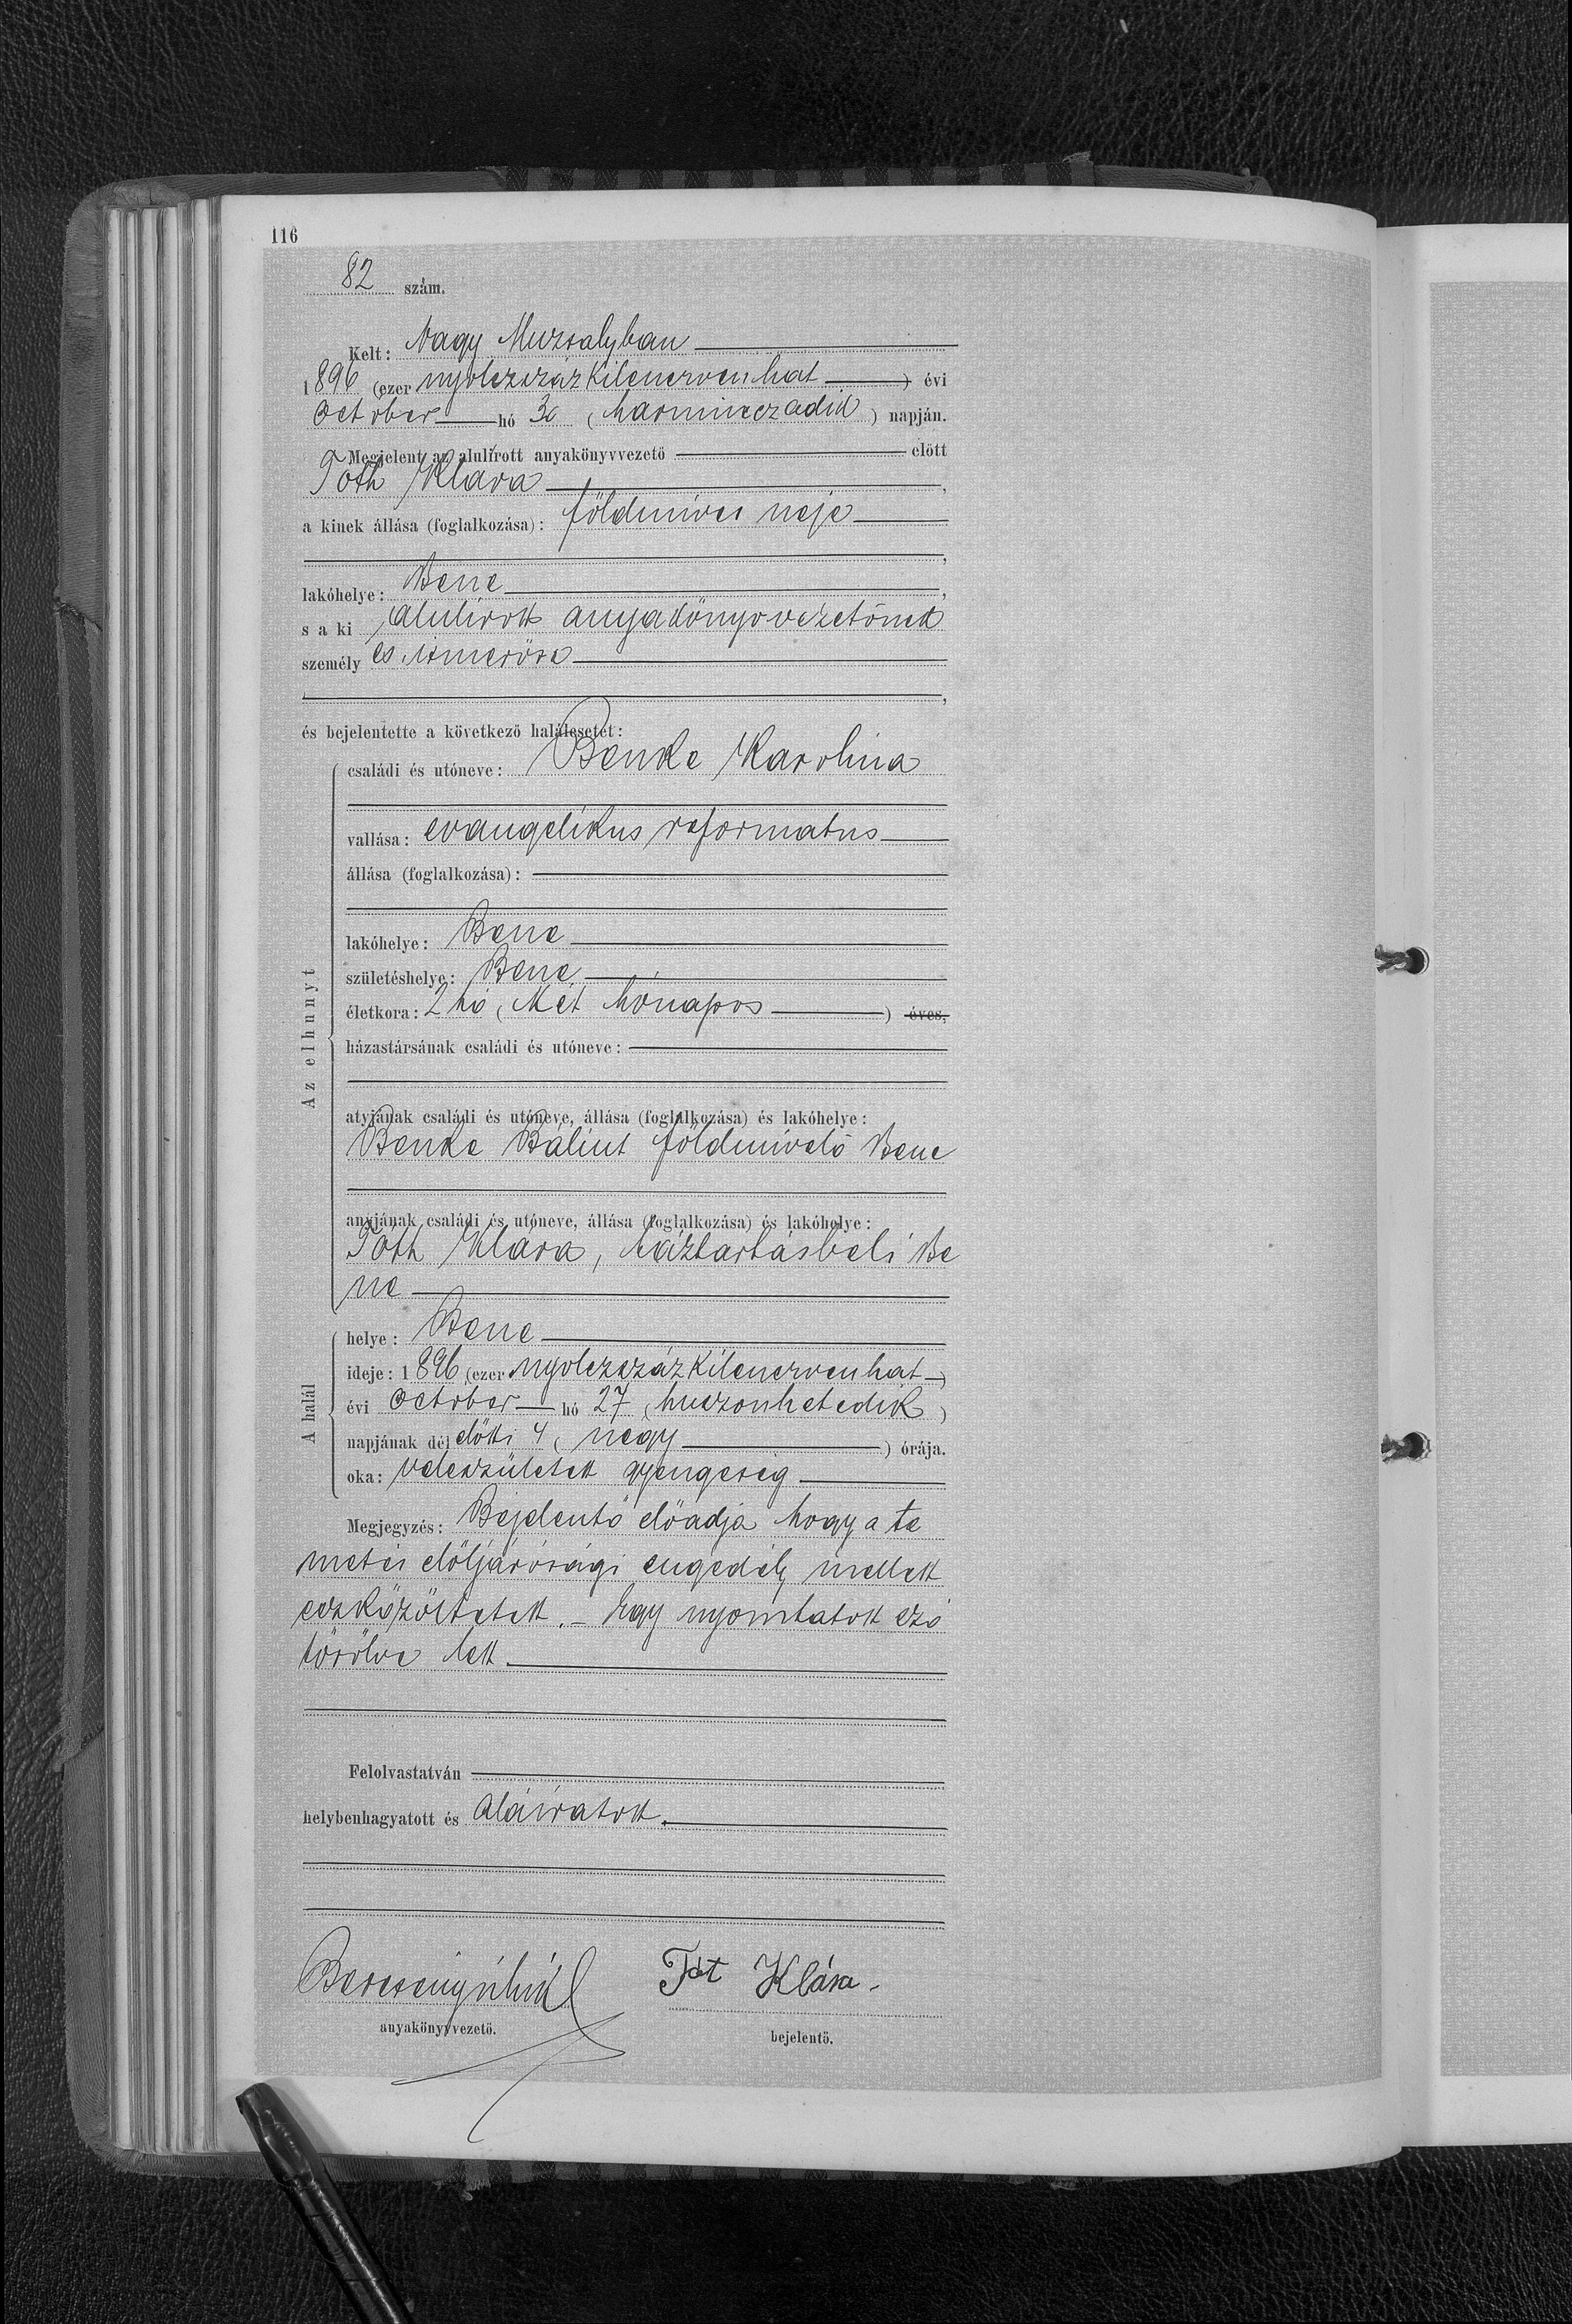 116
82 szám.
Kelt: Nagy Muzsalyban
1896 (ezer nyolczszáz kilenczven hat) évi
October hó 30 (harminczadik) napján.
Megjelent az alulírott anyakönyvvezető előtt
Tóth Klára,
a kinek állása (foglalkozása): földmíves neje
,
lakóhelye: Bene,
s a ki alulírott anyakönyvvezetőnek
személyes ismerőse
,
és bejelentette a következő halálesetet:
Az elhunyt
családi és utóneve: Benke Karolina
vallása: evangelikus reformatus
állása (foglalkozása):
lakóhelye: Bene
születéshelye: Bene
életkora: 2 hó (két hónapos) éves,
házastársának családi és utóneve:
atyjának családi és utóneve, állása (foglalkozása) és lakóhelye:
Benke Bálint földmívelő Bene
anyjának családi és utóneve, állása (foglalkozása) és lakóhelye:
Tóth Klára, háztartásbeli Be
ne
A halál
helye: Bene
ideje: 1896 (ezer nyolczszáz kilenczven hat)
évi October hó 27 (huszonhetedik)
napjának délelőtti 4 (négy) órája.
oka: veleszületett gyengeség
Megjegyzés: Bejelentő előadja hogy a te
metés elöljárósági engedély mellett
eszközöltetett. – Egy nyomtatott szó
törölve lett.
Felolvastatván
helybenhagyatott és aláíratott.
Tót Klára.
anyakönyvvezető.
bejelentő.